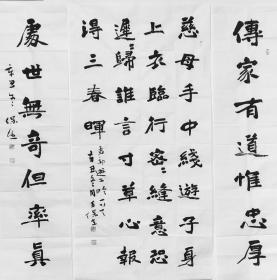 傳家有道惟忠厚
慈母手中綫遊子身
上衣臨行密密縫意恐
遲遲歸誰言寸草心報
得三春暉
處世無奇但率真
辛丑年